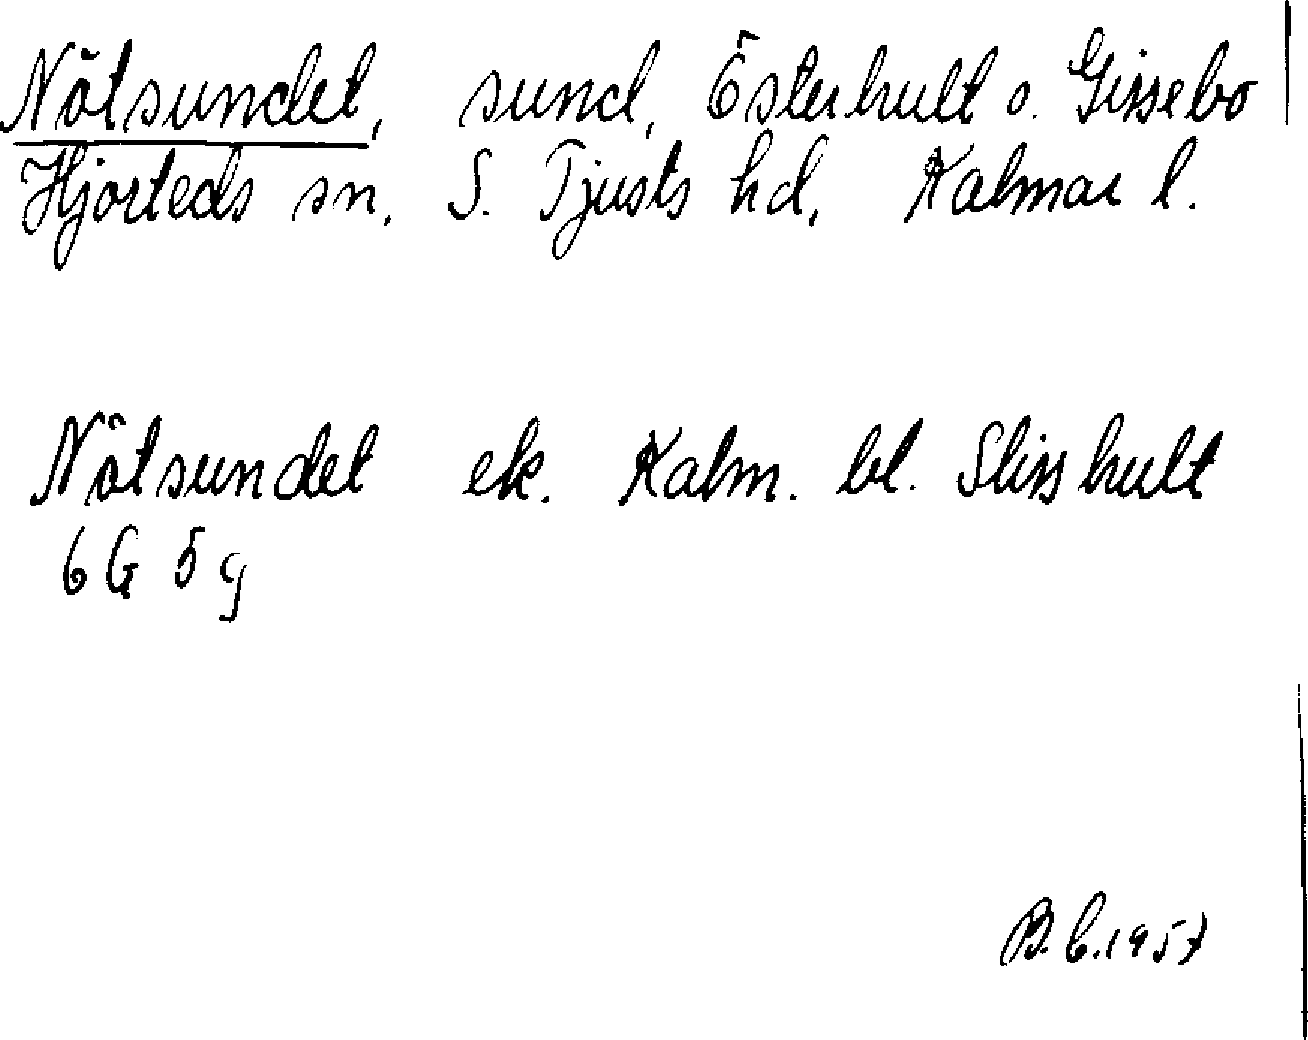 Nötsundet, sund, Österhult o. Gissebo
Hjorteds sn, S. Tjusts hd, Kalmar l.
Nötsundet ek. Kalm. bl. Slisshult
6G 5g
B.C. 1957